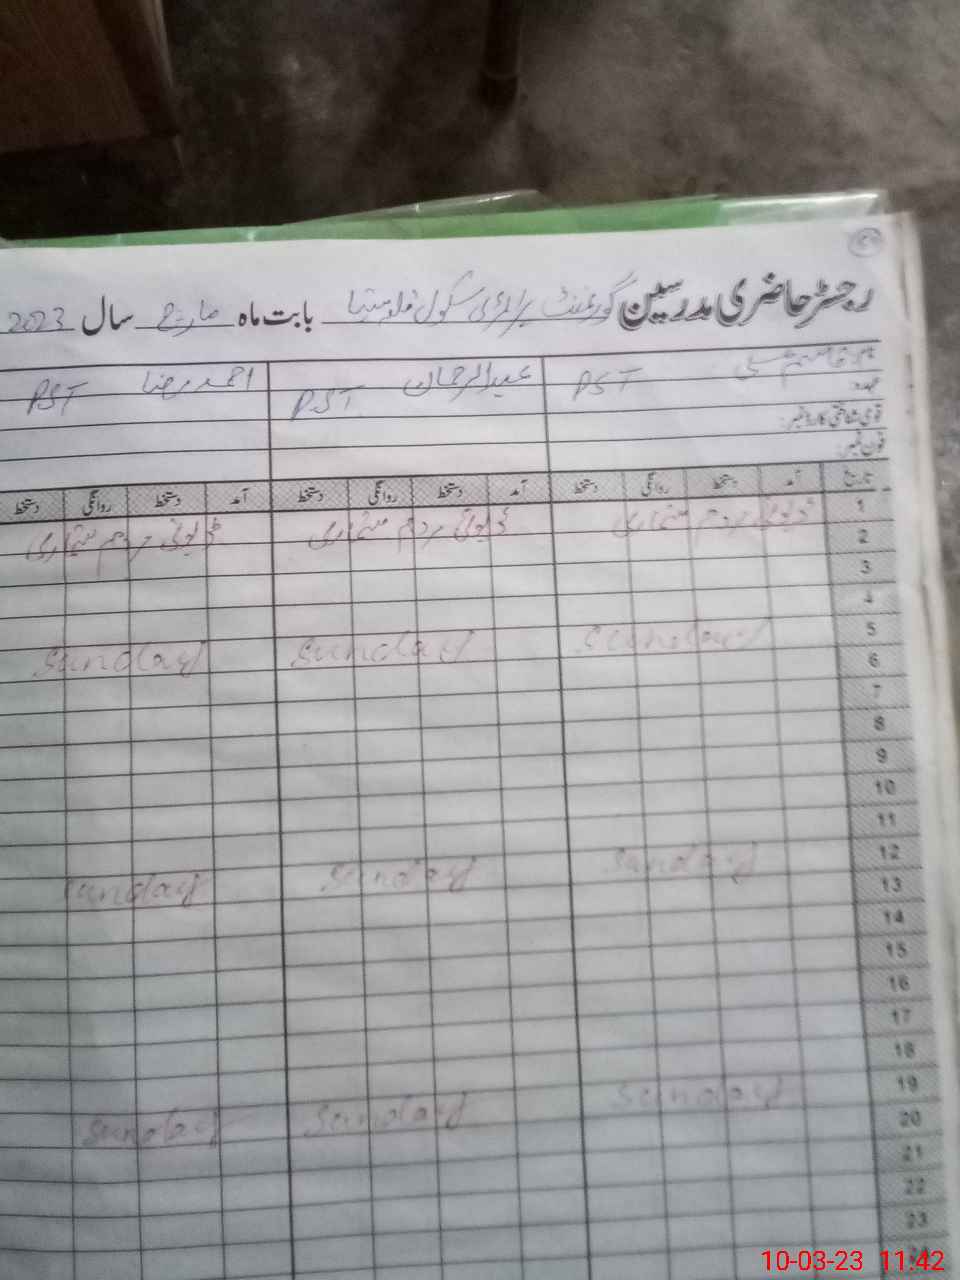 رجسٹر حاضری مدرسین گورنمنٹ پرائمری سکول بابت ماہ مارچ سال 2023
نام: قاسم علی عبدالرحمان احمد رضا
عہدہ: PST PST PST
قومی شناختی کارڈ نمبر:
فون نمبر:
تاریخ آمد دستخط روانگی دستخط آمد دستخط روانگی دستخط آمد دستخط روانگی دستخط
1 ڈیوٹی مردم شماری ڈیوٹی مردم شماری ڈیوٹی مردم شماری
2
3
4
5 Sunday Sunday Sunday
6
7
8
9
10
11
12 Sunday Sunday Sunday
13
14
15
16
17
18
19 Sunday Sunday Sunday
20
21
22
23
24
10-03-23 11:42